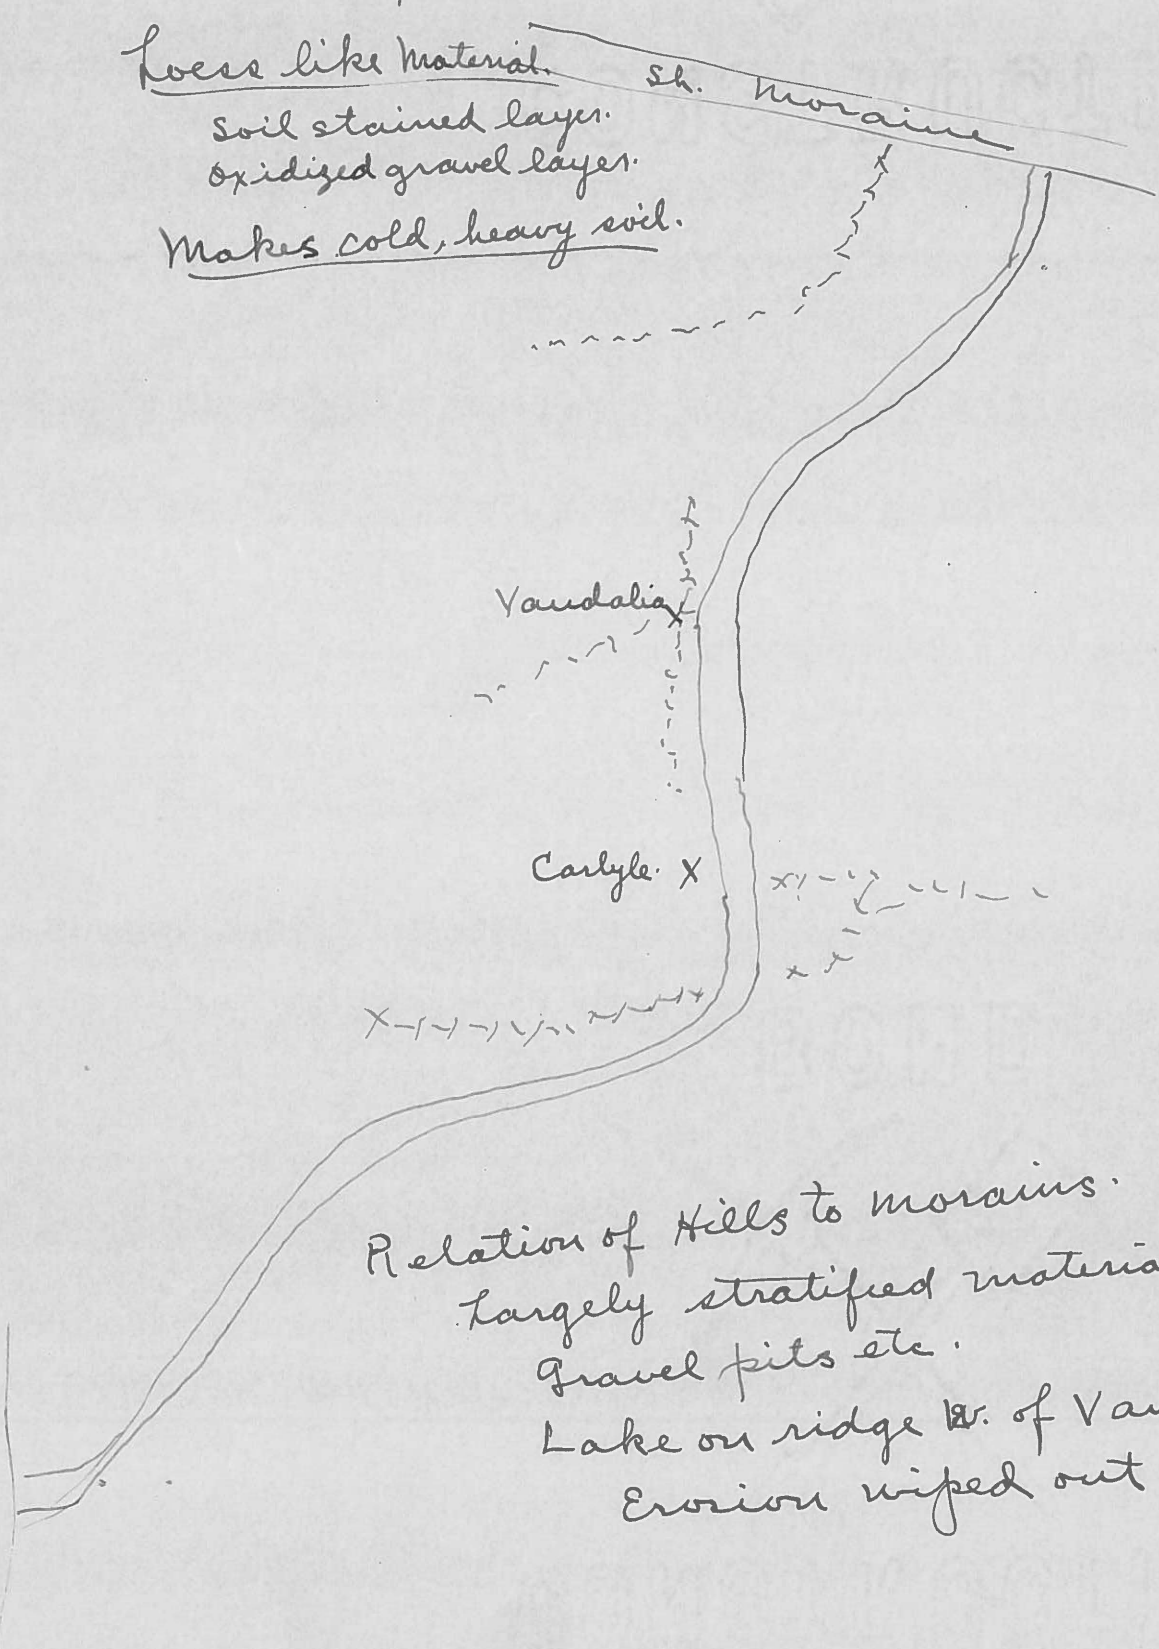 Loess like Material.
Sh. Moraine
Soil stained layer.
Oxidized gravel layer.
Makes cold, heavy soil.
Vandalia
X
Carlyle. X
Relation of Hills to Morains.
Largely stratified materia
Gravel pits etc.
Lake on ridge W. of Van
Erosion wiped out